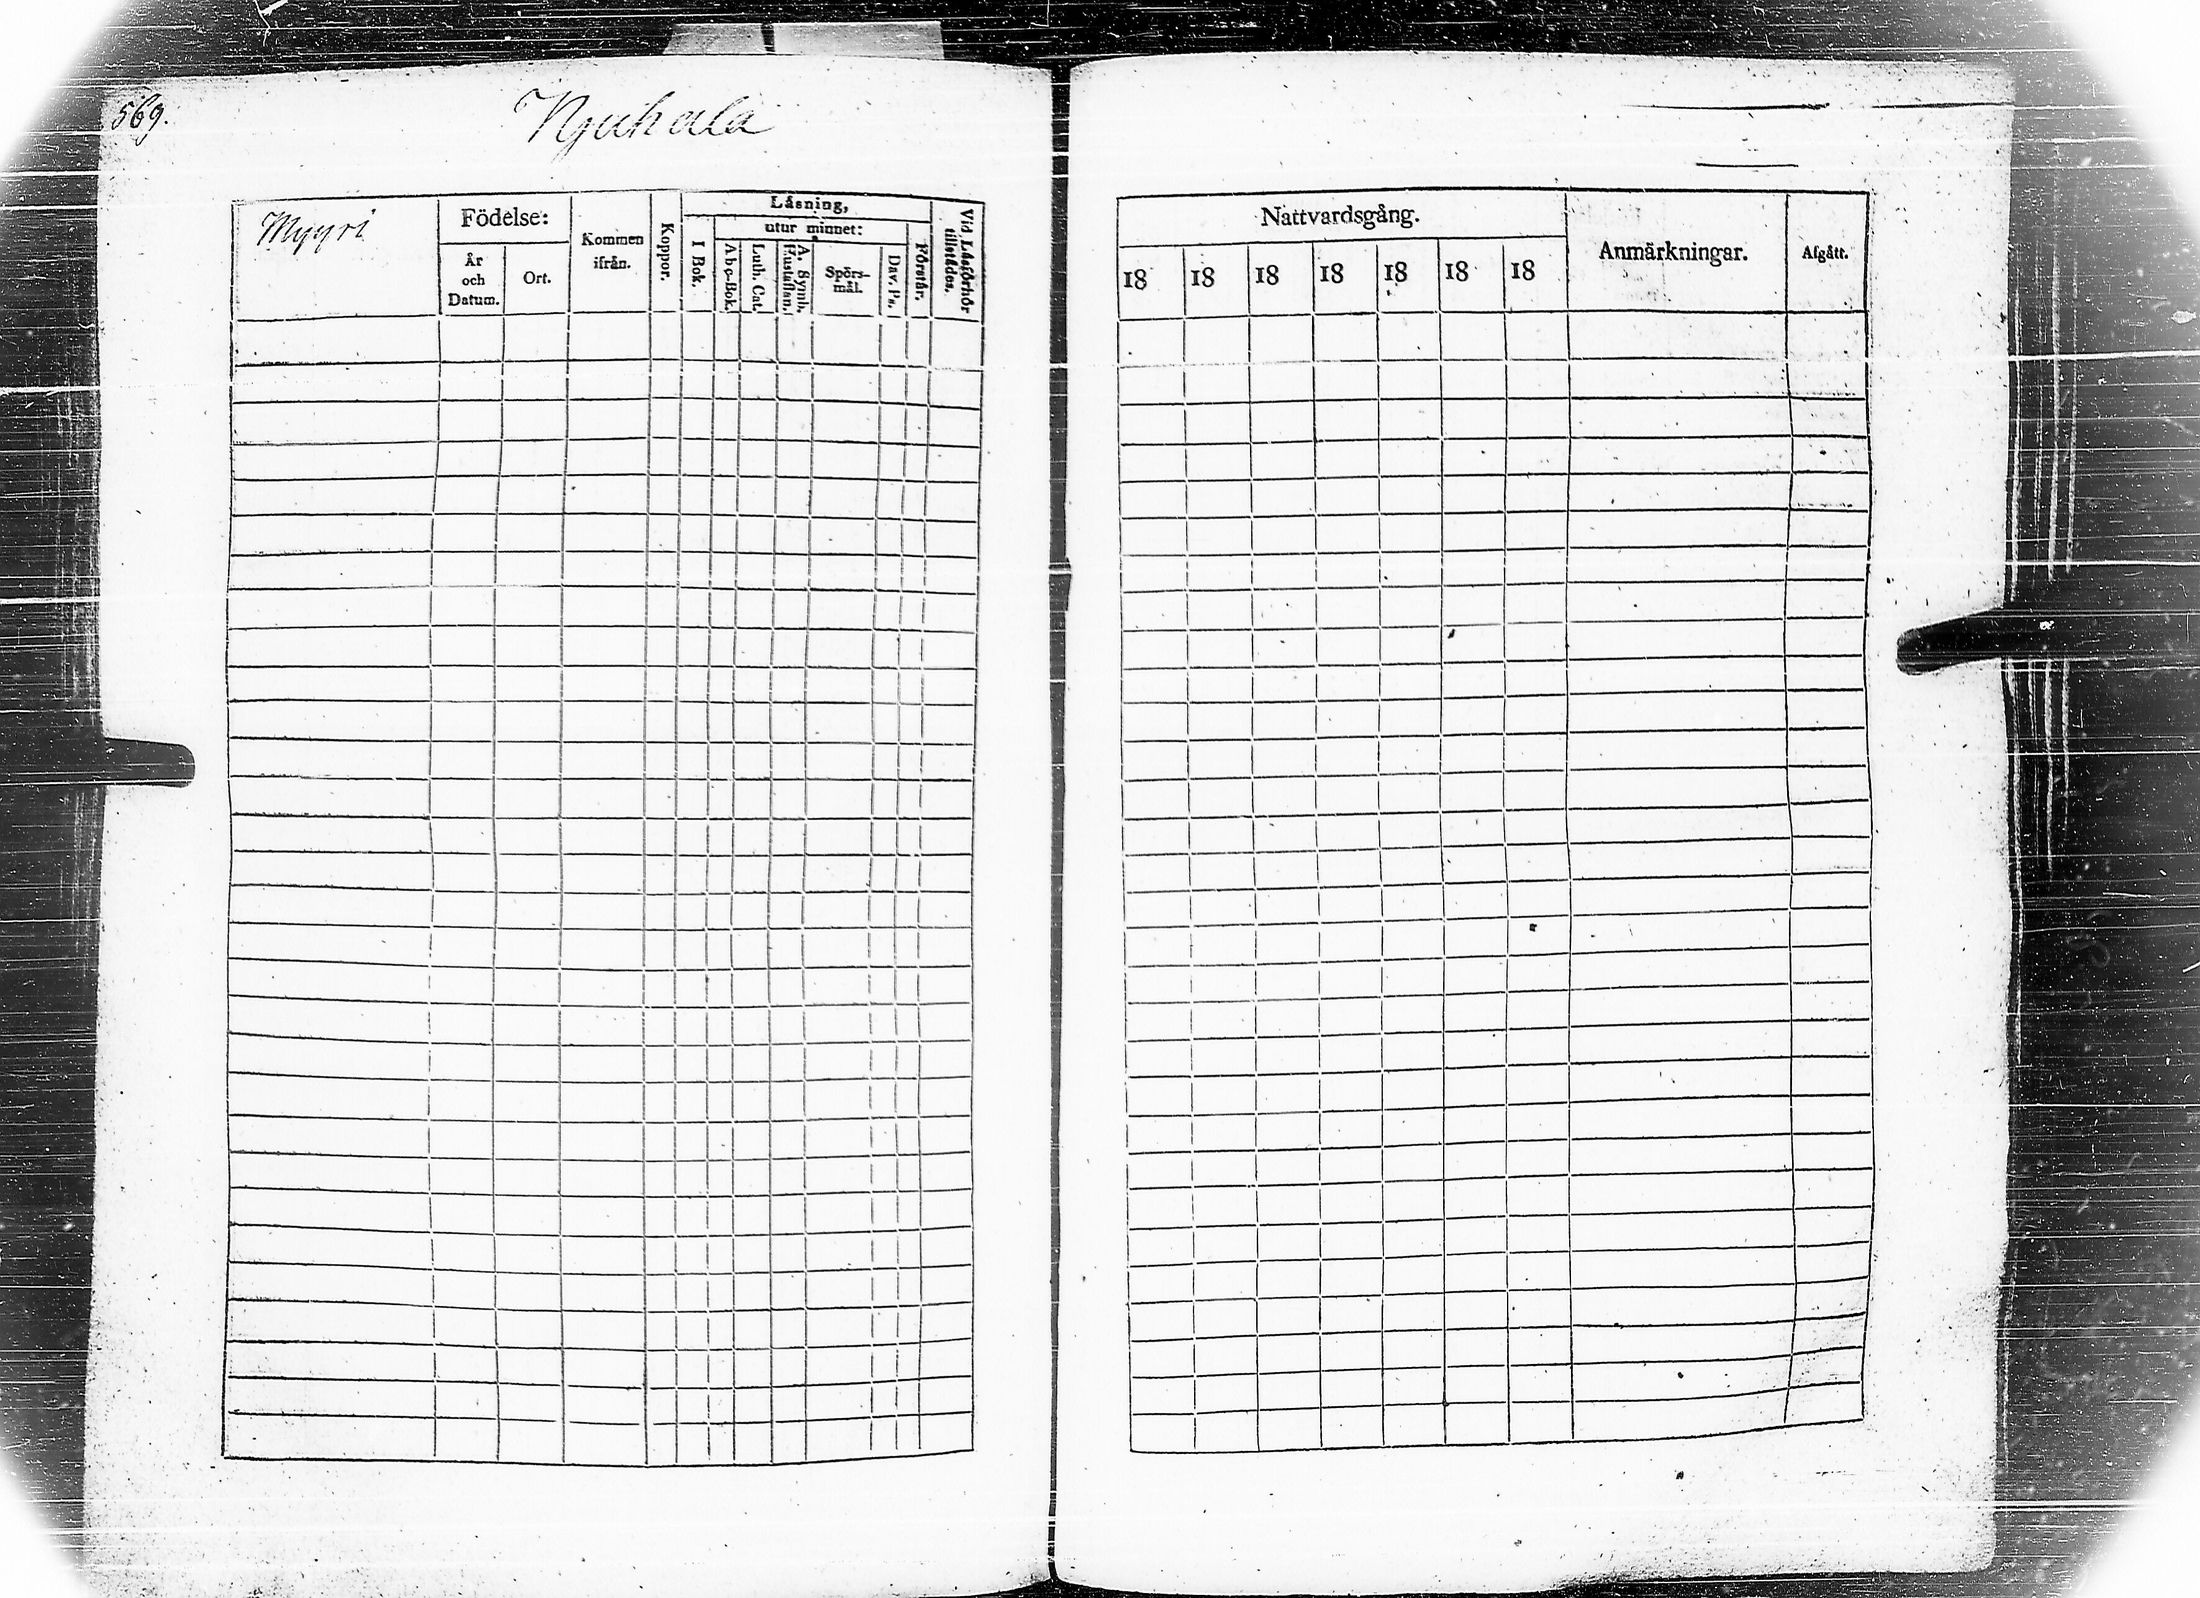 569.
Njuhala
Myyri
Födelse:
År
och
Datum.
Ort.
Kommen
ifrån.
Koppor.
Läsning,
I Bok.
utur minnet:
Abc-Bok.
Luth. Cat.
A. Symb.
Hustaflan.
Spörs-
mål.
Dav. Ps.
Förstår.
Vid Läsförhör
tillstädes.
Nattvardsgång.
18 18 18 18 18 18 18
Anmärkningar.
Afgått.